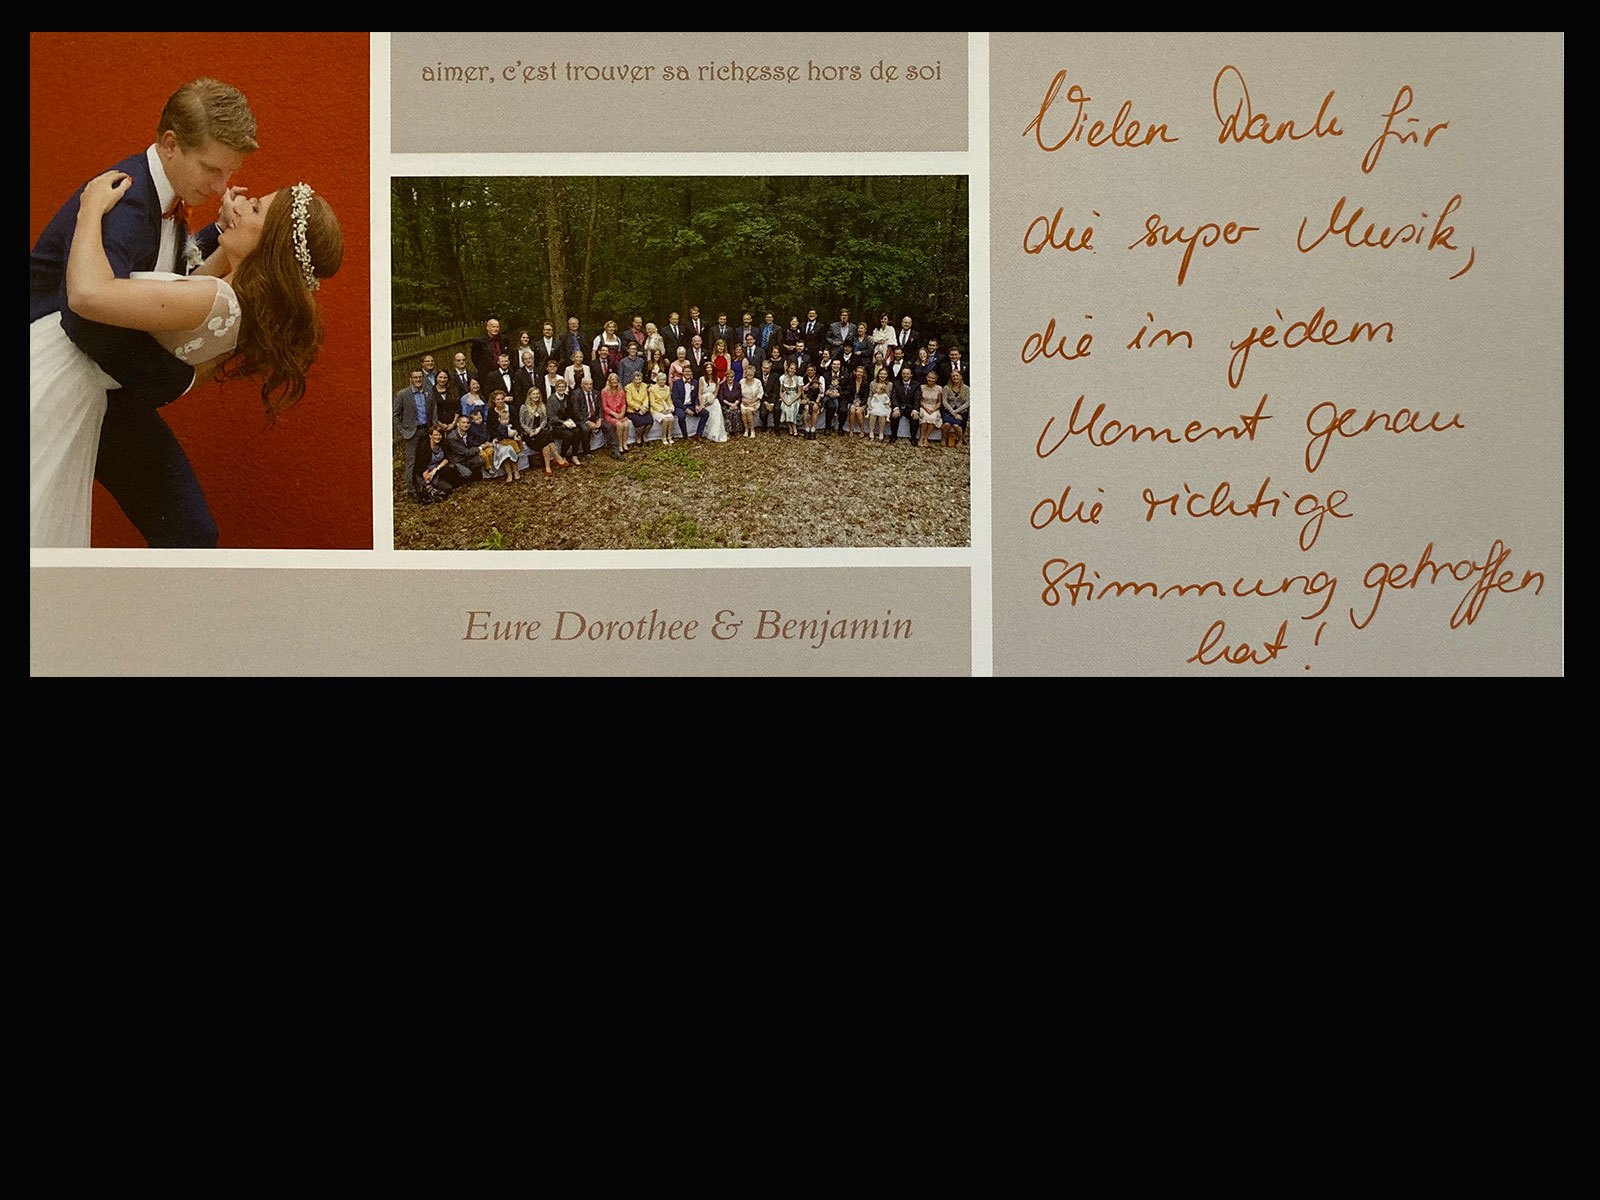 aimer, c'est trouver sa richesse hors de soi
Eure Dorothee & Benjamin
Vielen Dank für
die super Musik,
die in jedem
Moment genau
die richtige
Stimmung getroffen
hat!